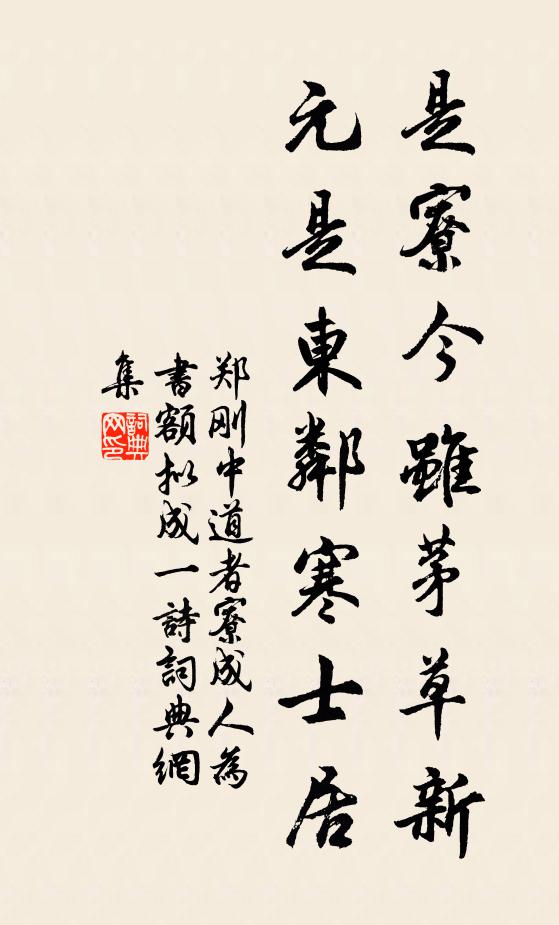 是寮今雖茅草新
元是東鄰寒士居
郑刚中道者寮成人為
書額拟成一詩詞典網
集
詞典
网印